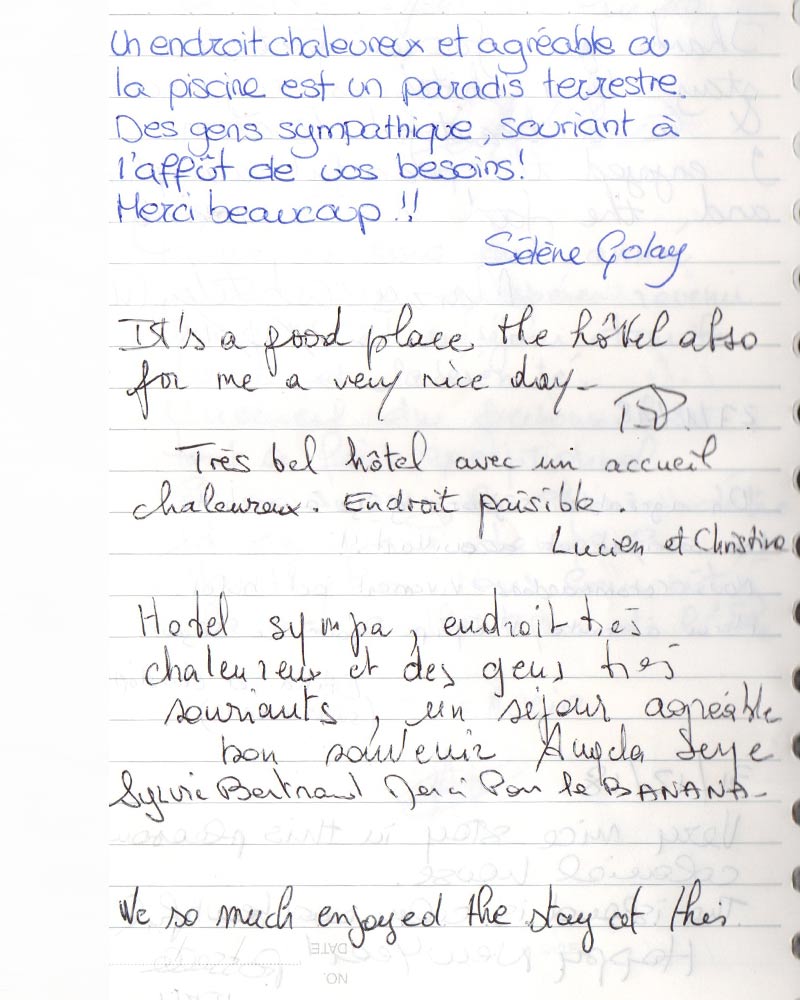 Un endroit chaleureux et agréable ou
la piscine est un paradis terrestre.
Des gens sympathique, souriant à
l'affût de vos besoins!
Merci beaucoup!!
Sélène Golay
It's a good place, the hôtel also
for me a very nice day-
Très bel hôtel avec un accueil
chaleureux. Endroit paisible.
Lucien et Christine
Hotel sympa, endroit très
chaleureux et des gens très
souriants, un séjour agréable
bon souvenir Angela Seye
Sylvie Bertrand Merci Pour le BANANA-
We so much enjoyed the stay at this
DATE
NO.